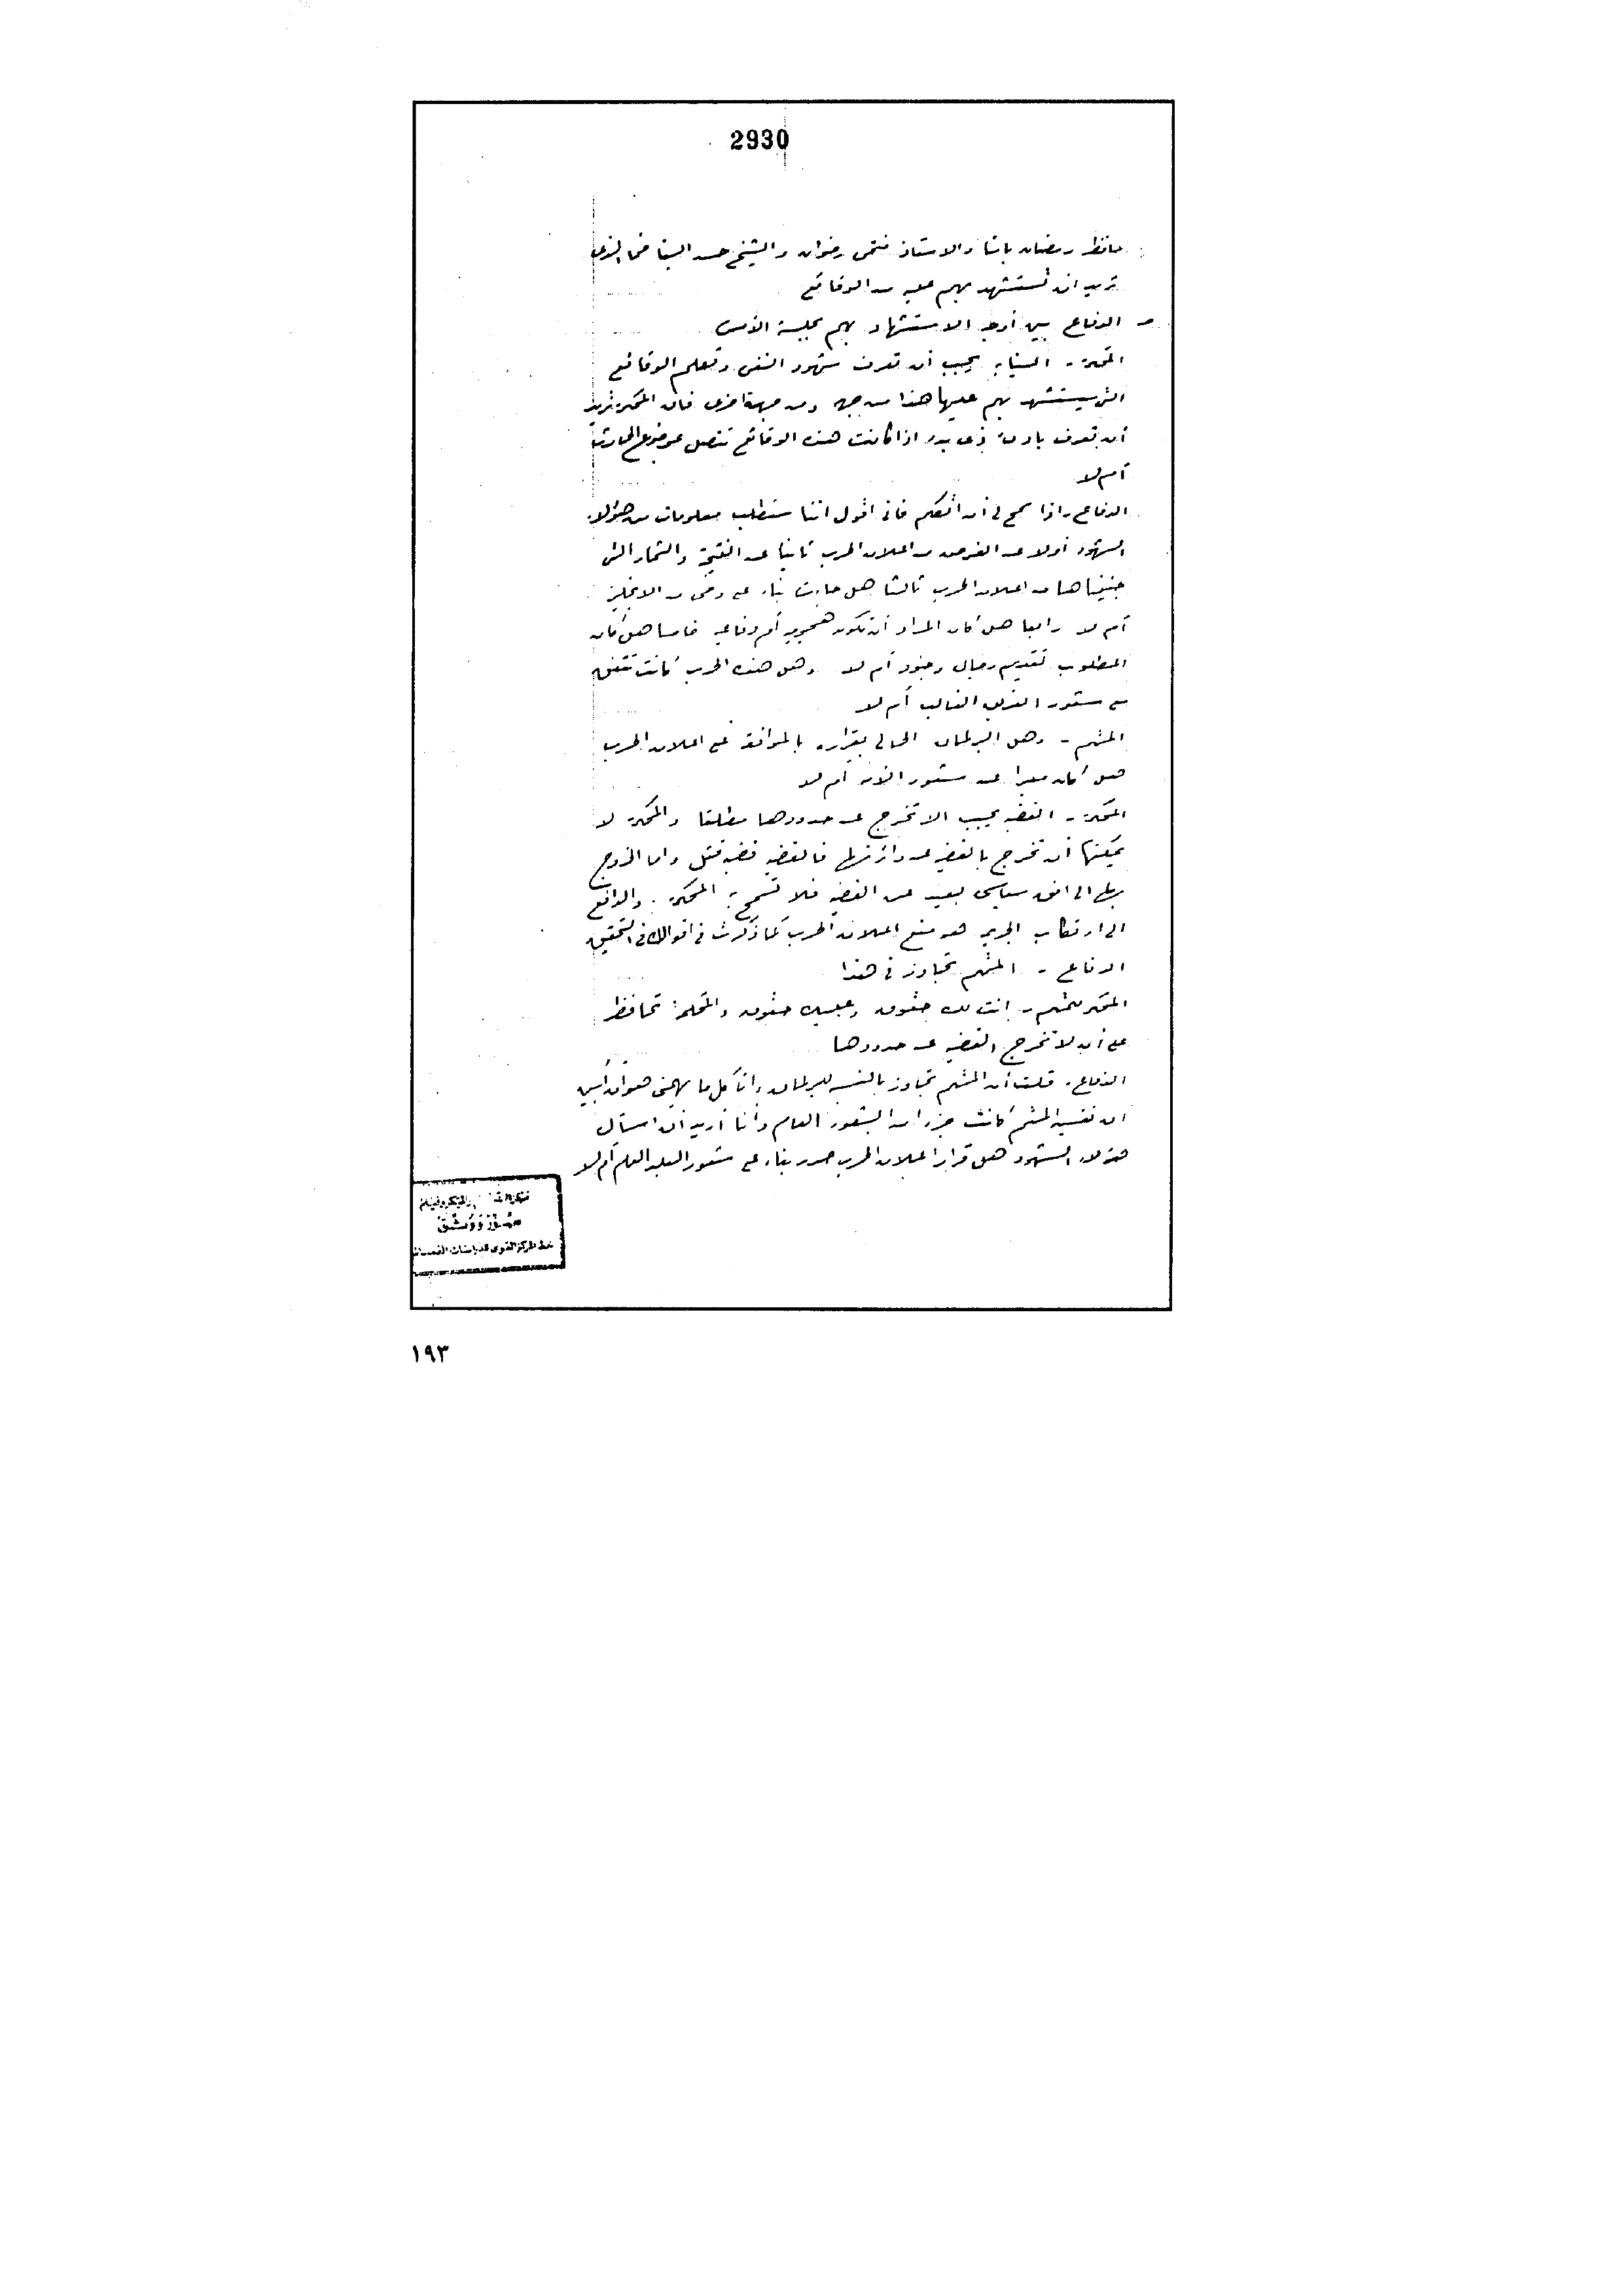 2930
حافظ رمضان باشا والاستاذ فتحى رضوان والشيخ حسن البنا فما الذى
تريد ان تستشهد بهم عليه من الوقائع
الدفاع بين أوجه الاستشهاد بهم بجلسة الأمس
المحكمة - النيابة يجب أن تعرف شهود النفى وتعلم الوقائع
التى سيستشهد بهم عليها هذا من جهة ومن جهة اخرى فان المحكمة تريد
أن تعرف بادئ ذى بدء اذا كانت هذه الوقائع تتصل بموضوع الحادث
أم لا
الدفاع - اذا سمح لى أن أتكلم فانى اقول اننا سنطلب معلومات من هؤلاء
الشهود أولا عن الغرض من اعلان الحرب ثانيا عن النتيجة والثمار التى
جنيناها من اعلان الحرب ثالثا هل جاءت بناء على وحى من الانجليز
أم لا رابعا هل كان المراد أن تكون هجومية أم دفاعية خامسا هل كان
المطلوب تقديم رجال وجنود أم لا وهل هذه الحرب كانت تتفق
مع شعور الفريق الغالب أم لا
المتهم - وهل البرلمان الحالى بقراره بالموافقة على اعلان الحرب
هل كان معبرا عن شعور الأمة أم لا
المحكمة - القضية يجب الا تخرج عن حدودها مطلقا والمحكمة لا
يمكنها أن تخرج بالقضية عن دائرتها فالقضية قضية قتل واما الخروج
بها الى افق سياسى بعيد عن القضية فلا تسمح به المحكمة. والدافع
الى ارتكاب الجريمة هو منع اعلان الحرب كما ذكرت فى اقوالك فى التحقيق
الدفاع - المتهم تجاوز فى هذا
المحكمة للمتهم - انت لك حقوق وعليك حقوق والمحكمة تحافظ
على أن لا تخرج القضية عن حدودها
الدفاع - قلت أن المتهم تجاوز بالنسبة للبرلمان وأنا كل ما يهمنى هو ان أبين
ان نفسية المتهم كانت جزءا من الشعور العام وأنا أريد أن اسأل
هؤلاء الشهود هل قرار اعلان الحرب صدر بناء على شعور البلد العام أم لا
١٩٣